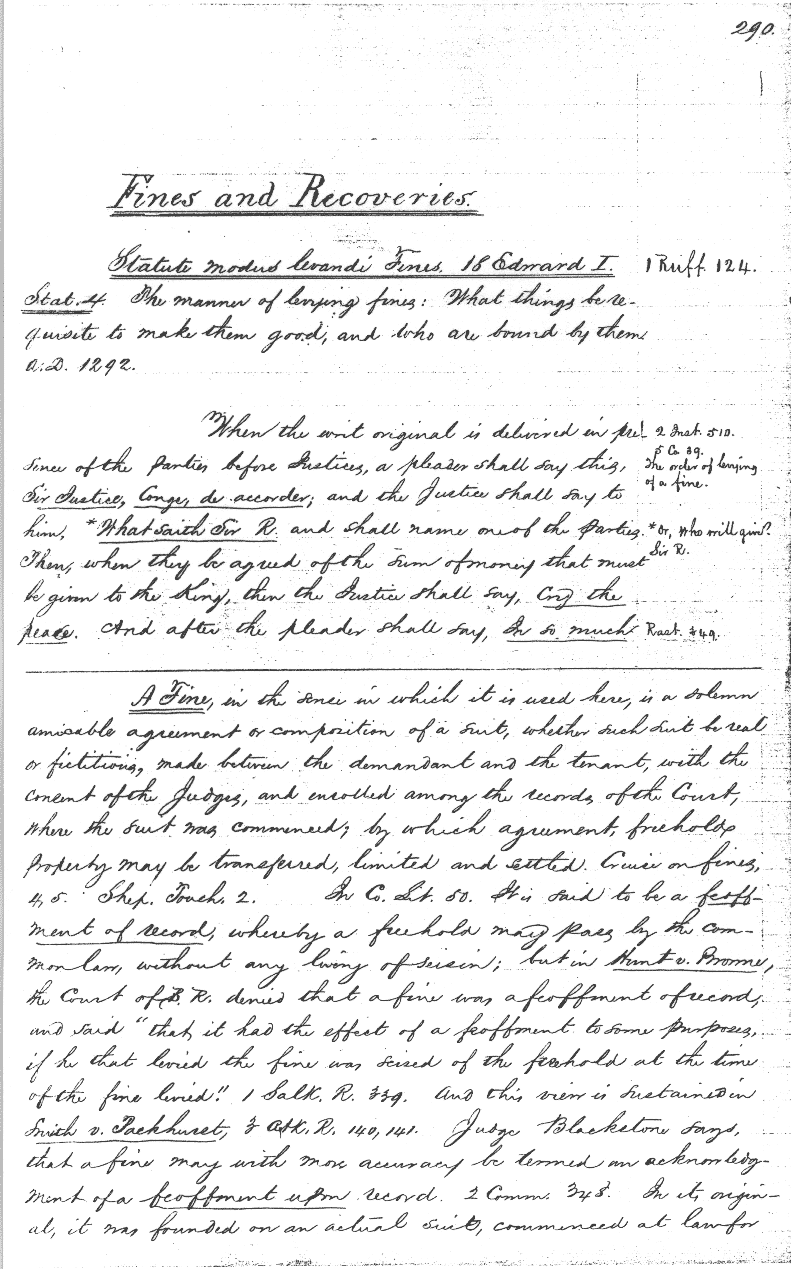 290.
Fines and Recoveries.
Statute modus levandi Fines. 18 Edward I. 1 Ruff. 124.
Stat. 4. The manner of levying fines: What things be re-
quisite to make them good, and who are bound by them.
A.D. 1292.
When the writ original is delivered in pre- 2 Inst. 510.
5 Co. 39.
sence of the Parties before Justices, a pleader shall say this, The order of levying
of a fine.
Sir Justice, Conge, de accorder; and the Justice shall say to
him, *What saith Sir R. and shall name one of the Parties. *Or, Who will give?
Sir R.
Then, when they be agreed of the sum of money that must
be given to the King, then the Justice shall say, Cry the
peace. And after the pleader shall say, In so much Rast. 349.
A Fine, in the sence in which it is used here, is a solemn
amicable agreement or composition of a suit, whether such suit be real
or fictitious, made between the demandant and the tenant, with the
consent of the Judges, and enrolled among the records of the Court,
where the suit was commenced; by which agreement, freehold
property may be transferred, limited and settled. Cruise on fines,
4, 5. Shep. Touch. 2. In Co. Lit. 50. It is said to be a feoff-
ment of record, whereby a freehold may pass by the com-
mon law, without any living of seisin; but in Hunt v. Brown,
the Court of B. R. denied that a fine was a feoffment of record,
and said "that it had the effect of a feoffment to some purposes,
if he that levied the fine was seized of the freehold at the time
of the fine levied." 1 Salk. R. 339. And this view is sustained in
Smith v. Packhurst, 3 Atk. R. 140, 141. Judge Blackstone says,
that a fine may with more accuracy be termed an acknowledg-
ment of a feoffment upon record. 2 Comm. 348. In its origin-
al, it was founded on an actual suit, commenced at law for